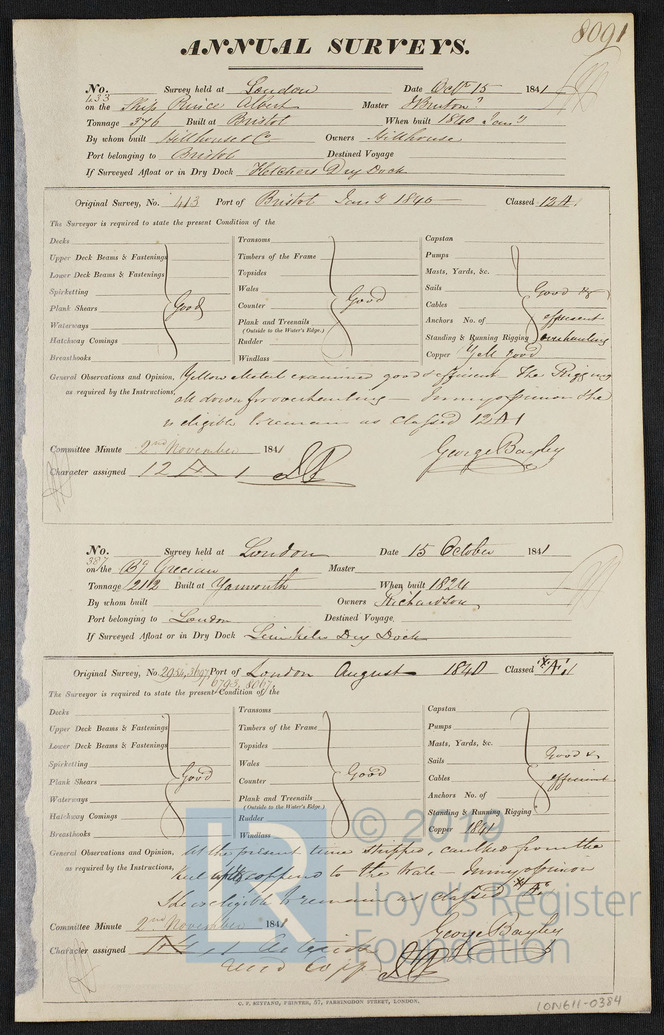 8091
ANNUAL SURVEYS.
No. 433 Survey held at London Date Octr 15 1841
on the Ship Prince Albert Master
Tonnage 376 Built at Bristol When built 1840 Jany
By whom built Hillhouse & Co Owners Hillhouse
Port belonging to Bristol Destined Voyage
If Surveyed Afloat or in Dry Dock Fletchers Dry Dock
Original Survey, No. 413 Port of Bristol Jany 1840 Classed 12 A 1
The Surveyor is required to state the present Condition of the
Decks Transoms Capstan
Upper Deck Beams & Fastenings Timbers of the Frame Pumps
Lower Deck Beams & Fastenings Topsides Masts, Yards, &c.
Spirketting Wales Sails Good &
Plank Shears Good Counter Good Cables
Waterways Plank and Treenails Anchors No. of efficient
(Outside to the Water's Edge.)
Hatchway Comings Rudder Standing & Running Rigging overhauling
Breasthooks Windlass Copper Y M good
General Observations and Opinion, Yellow Metal examined good & efficient The Rigging
as required by the Instructions, all down for overhauling – In my opinion She
is eligible to remain as classed 12 A 1
Committee Minute 2nd November 1841 George Bayley
Character assigned 12 A 1
No. 387 Survey held at London Date 15 October 1841
on the Bg Grecian Master
Tonnage 212 Built at Yarmouth When built 1824
By whom built Owners Richardson
Port belonging to London Destined Voyage
If Surveyed Afloat or in Dry Dock Dry Dock
Original Survey, No. 2956, 3697, 6793, 8067 Port of London August 1840 Classed *Æ1
The Surveyor is required to state the present Condition of the
Decks Transoms Capstan
Upper Deck Beams & Fastenings Timbers of the Frame Pumps
Lower Deck Beams & Fastenings Topsides Masts, Yards, &c.
Spirketting Wales Sails Good &
Plank Shears Good Counter Good Cables efficient
Waterways Plank and Treenails Anchors No. of
(Outside to the Water's Edge.)
Hatchway Comings Rudder Standing & Running Rigging
Breasthooks Windlass Copper 1841
General Observations and Opinion, At the present time stripped, caulked from the
as required by the Instructions, keel up & coppered to the Wale – In my opinion
She is eligible to remain as classed
Committee Minute 2nd November 1841 George Bayley
Character assigned
and Copp
C. F. SEYFANG, PRINTER, 57, FARRINGDON STREET, LONDON.
© 2019
LR
Lloyd's Register
Foundation
LON611-0384